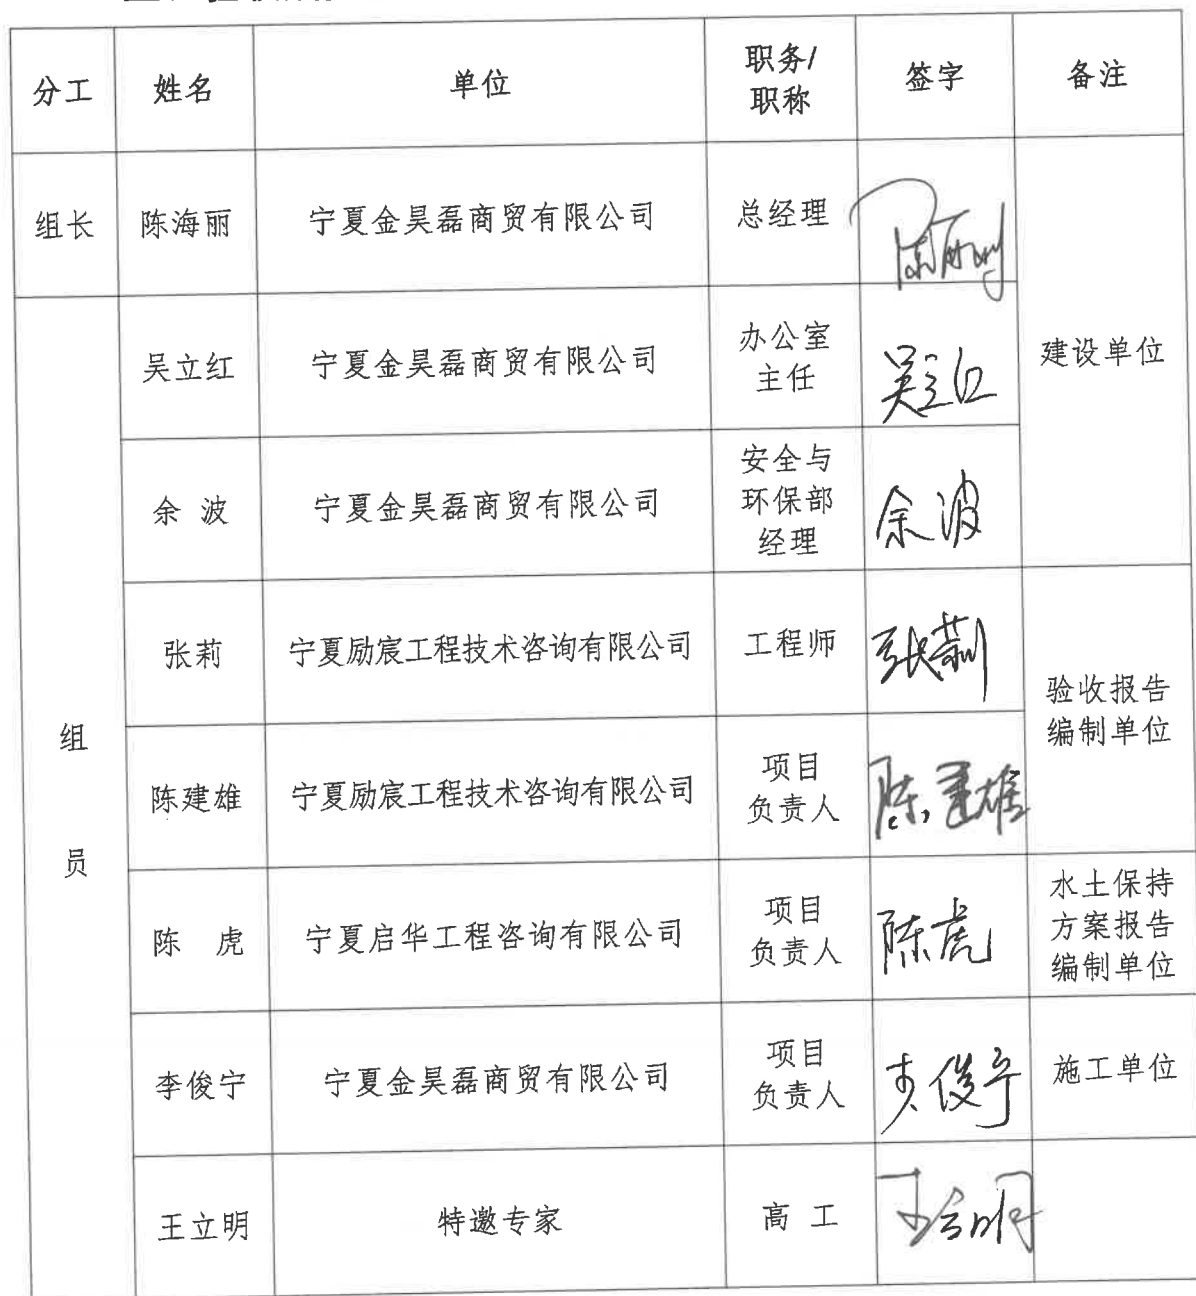 分工 姓名 单位 职务/职称 签字 备注
组长 陈海丽 宁夏金昊磊商贸有限公司 总经理 建设单位
组员
吴立红 宁夏金昊磊商贸有限公司 办公室主任 吴立红
余 波 宁夏金昊磊商贸有限公司 安全与环保部经理 余波
张莉 宁夏励宸工程技术咨询有限公司 工程师 张莉 验收报告编制单位
陈建雄 宁夏励宸工程技术咨询有限公司 项目负责人 陈建雄
陈 虎 宁夏启华工程咨询有限公司 项目负责人 陈虎 水土保持方案报告编制单位
李俊宁 宁夏金昊磊商贸有限公司 项目负责人 李俊宁 施工单位
王立明 特邀专家 高 工 王立明